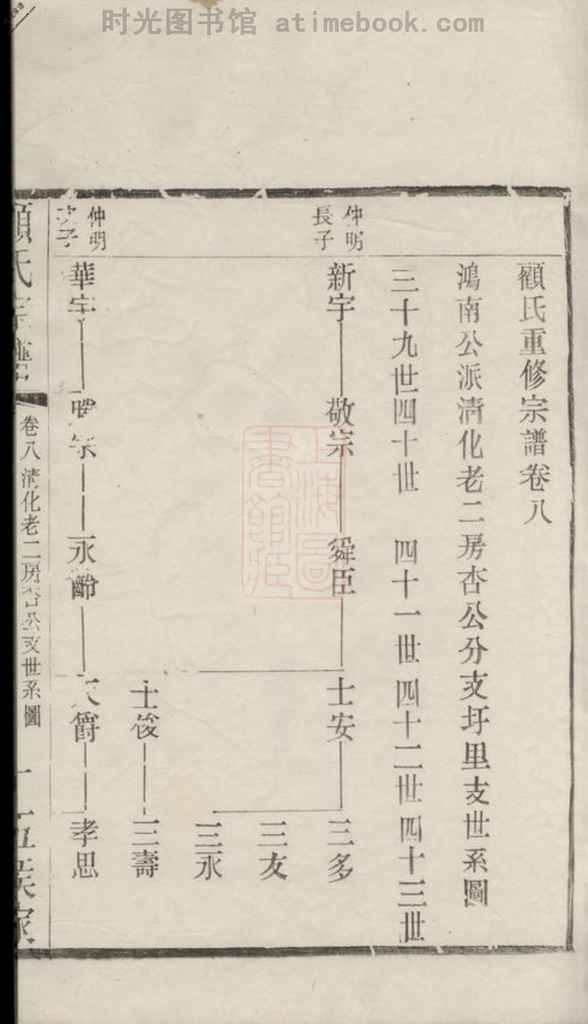 时光图书馆 atimebook.com
顧氏重修宗譜卷八
鴻南公派清化老二房杏公分支圩里支世系圖
三十九世 四十世 四十一世 四十二世 四十三世
仲明長子
新宇 敬宗 舜臣 士安 三多
三友
三永
士俊 三壽
仲明次子
華宇 永齡 天爵 孝思
顧氏宗譜
卷八 清化老二房杏公支世系圖
上海圖書館藏